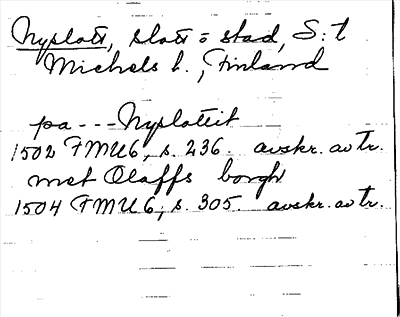 Nyslott, slott o stad, S:t
Michels l., Finland
pa --- Nysloteit
1502 FMU6, s. 236. avskr. av tr.
met Olaffs borgh
1504 FMU6, s. 305. avskr. av tr.